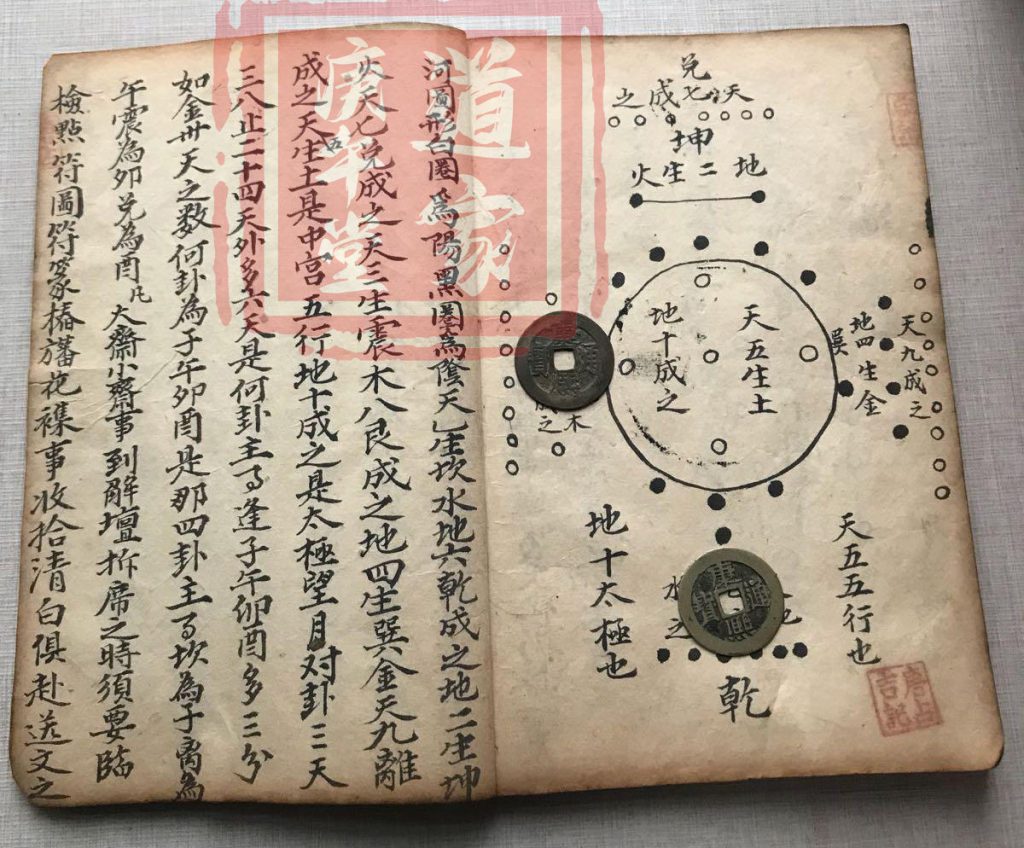 道家
兌
天七成之
坤
地二生火
天九成之
地四生金
巽
天五生土
地十成之
木
成之
天五五行也
地十太極也
水
之
乾
河圖形白圈爲陽黑圈爲陰天乙生坎水地六乾成之地二生坤
火天七兌成之天三生震木八艮成之地四生巽金天九離
成之天五生土是中宮五行地十成之是太極望月对卦三天
三八止二十四天外多六天是何卦主了逢子午卯酉多三分
如金卅天之數何卦為子午卯酉是那四卦主了坎為子离為
午震為卯兌為酉凡大齋小齋事到解壇拆席之時須要臨
檢點符圖符篆樁旛花襍事收拾清白俱赴送文之